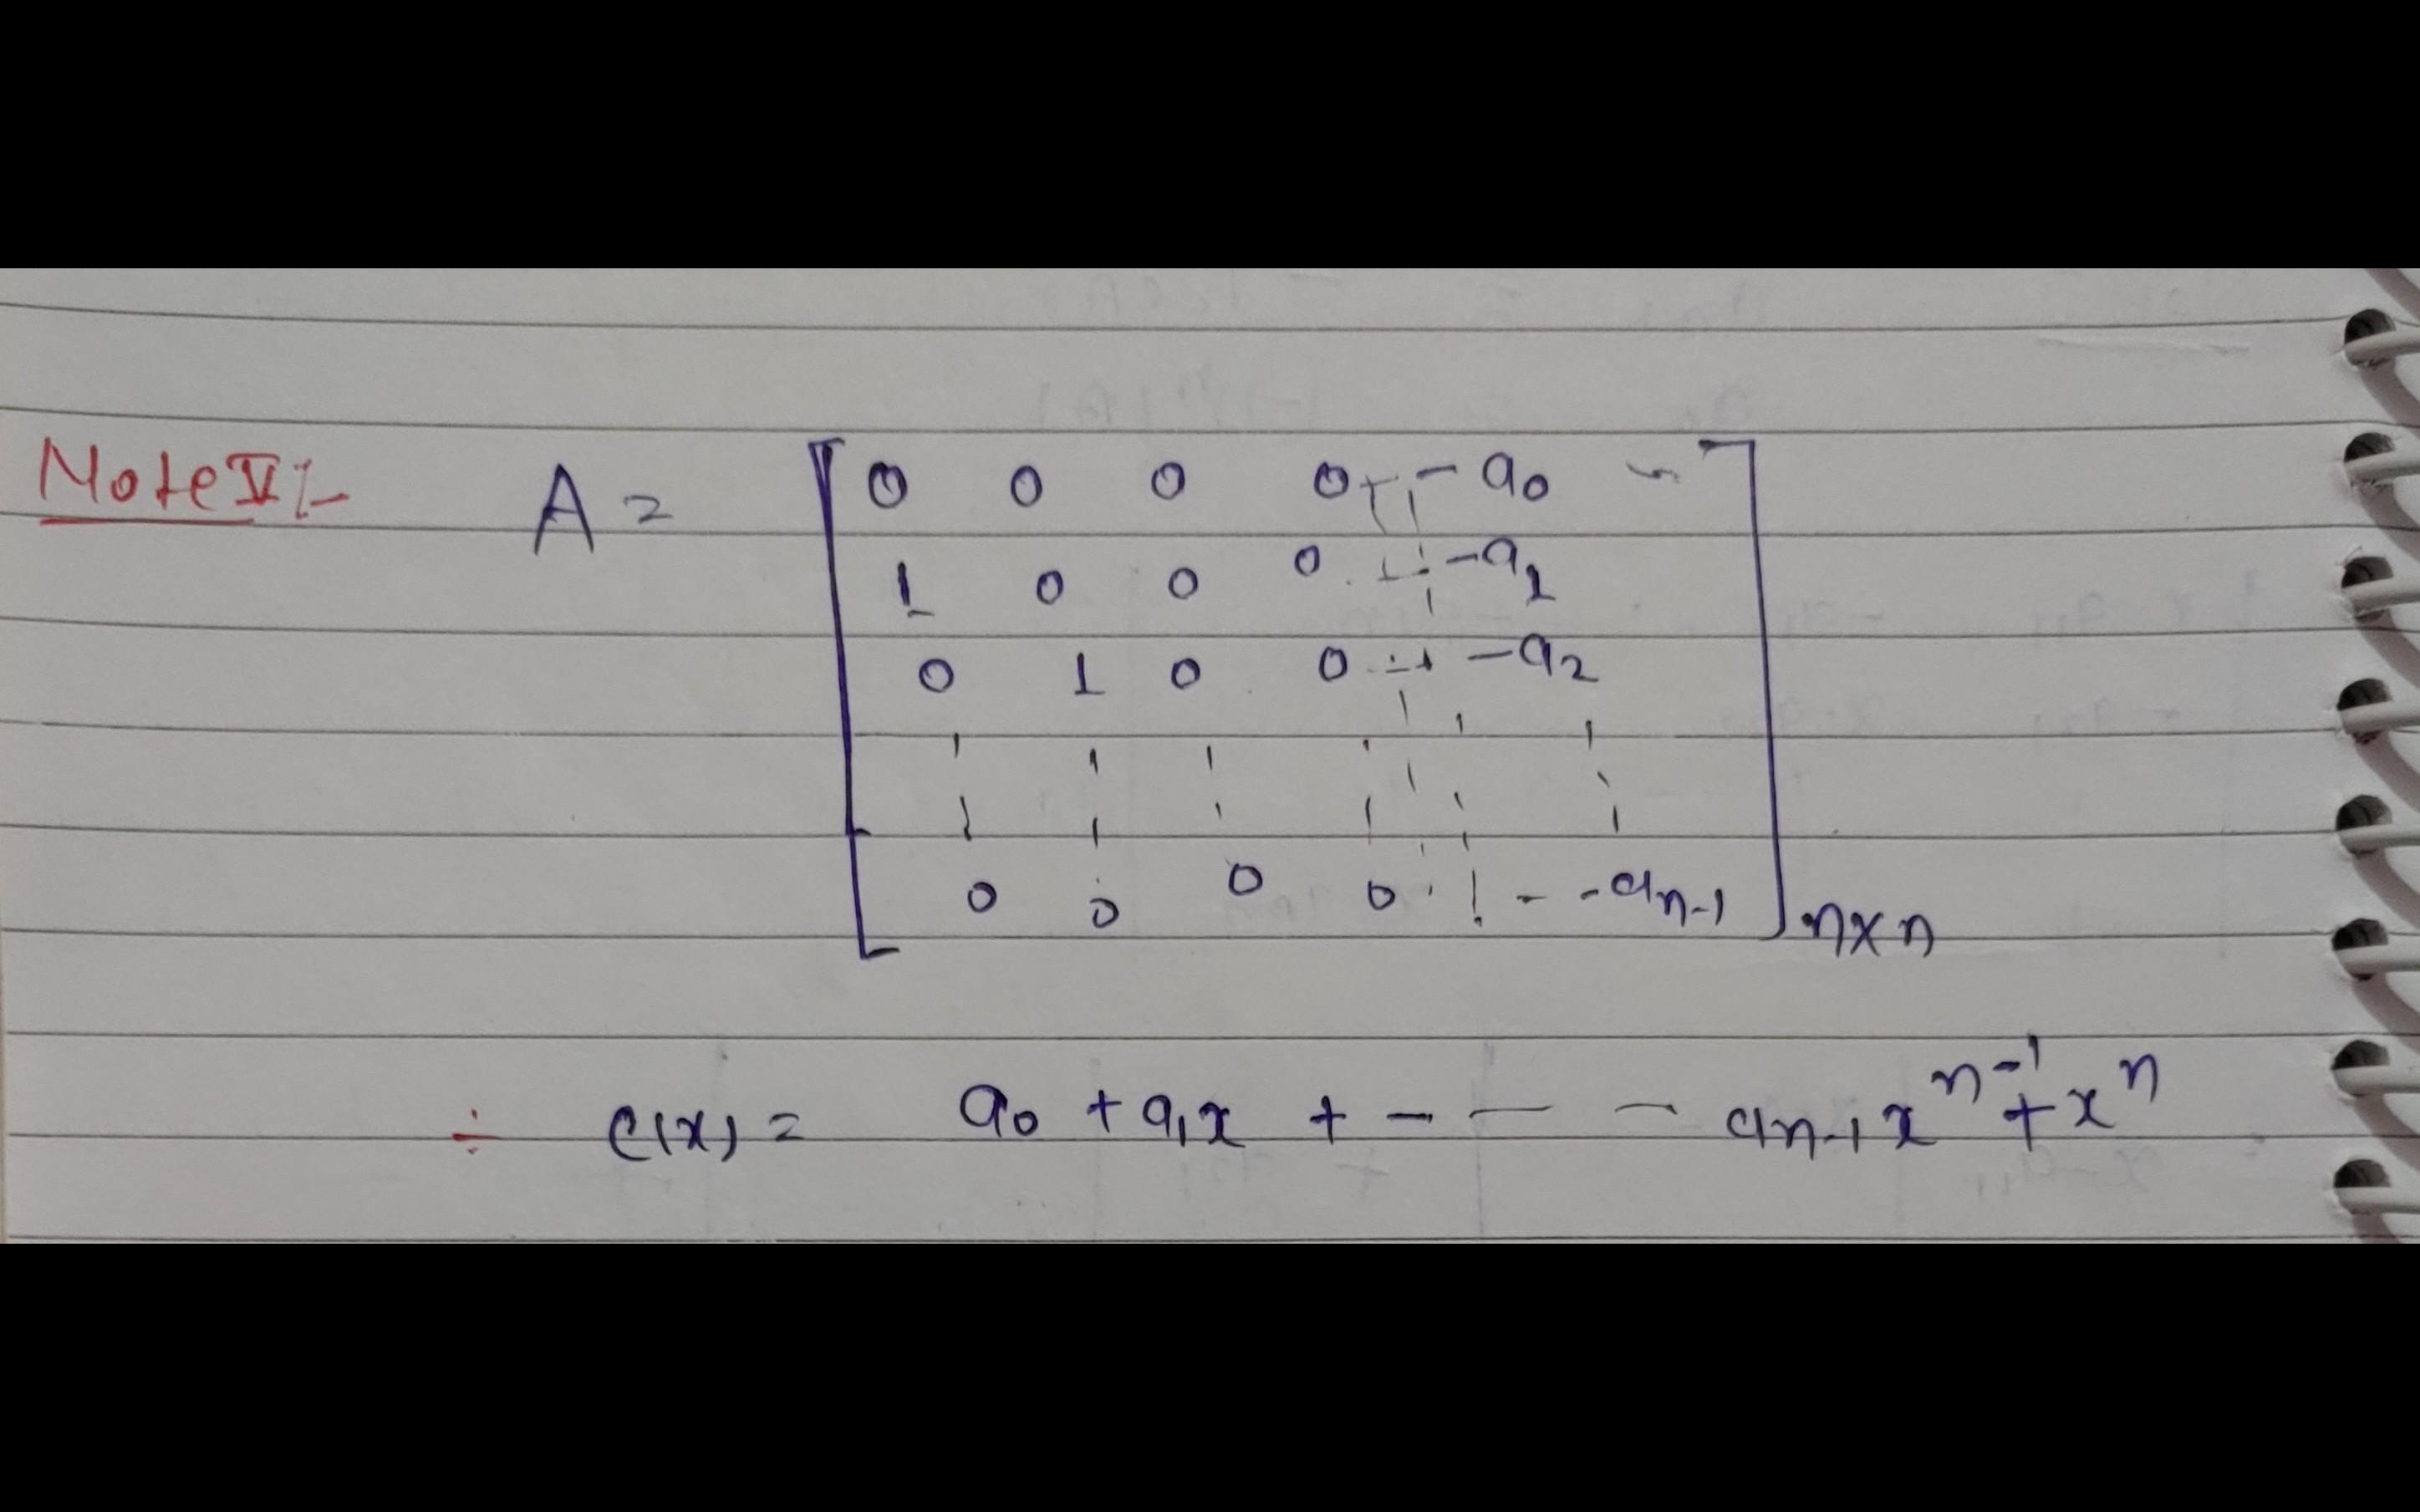 Note V:- A = [ 0 0 0 0 - - -a₀
1 0 0 0 - - -a₁
0 1 0 0 - - -a₂
0 0 0 0 - - -aₙ₋₁ ] n×n
÷ C(x) = a₀ + a₁x + - - - aₙ₋₁xⁿ⁻¹ + xⁿ